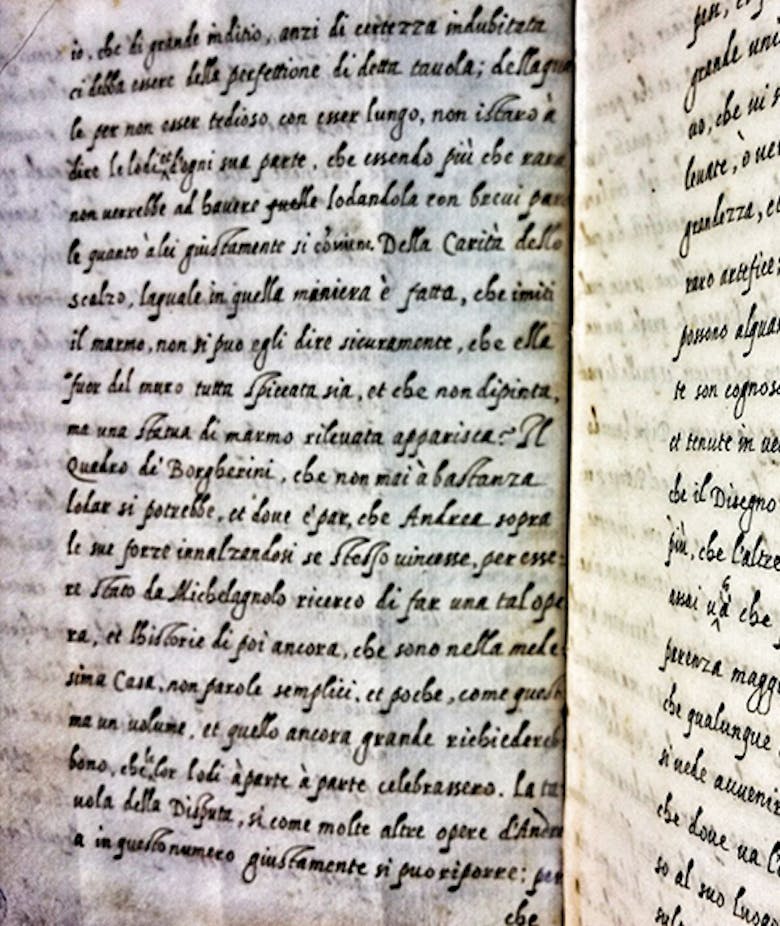 io, che di grande inditio, anzi di certezza indubitata
ci debba essere della perfettione di detta tauola; dellaqua
le per non esser tedioso con esser lungo, non istarò à
dire le lodi et d'ogni sua parte, che essendo più che rara
non uerrebbe ad hauere quelle lodandola con breui paro
le quanto à lei giustamente si cōuiene. Della Carità dello
scalzo, laquale in quella maniera è fatta, che imiti
il marmo, non si puo egli dire sicuramente, che ella
fuor del muro tutta spiccata sia, et che non dipinta,
ma una statua di marmo rileuata apparisca? Il
Quadro di Borgherini, che non mai à bastanza
lodar si potrebbe, et doue è par, che Andrea sopra
le sue forze innalzandosi se stesso uincesse, per esse-
re stato da Michelagnolo ricerco di far una tal ope
ra, et l'historie di poi ancora, che sono nella mede
sima Casa, non parole semplici, et poche, come queste
ma un uolume, et quello ancora grande richiedereb
bono, che le lor lodi à parte à parte celebrassero. La ta
uola della Disputa, si come molte altre opere d'Andre
a in questo numero giustamente si puo riporre: per
che
pesi,
grande uni
uo, che ui s
leuate, ò uer
grandezza, et
raro artefice;
possono alqua
te son cognosc
et tenute in ue
che il Disegno
più, che l'altre
assai che
perenza magg
che qualunque
si uede auuenir
che doue ua l'o
so al suo luogo